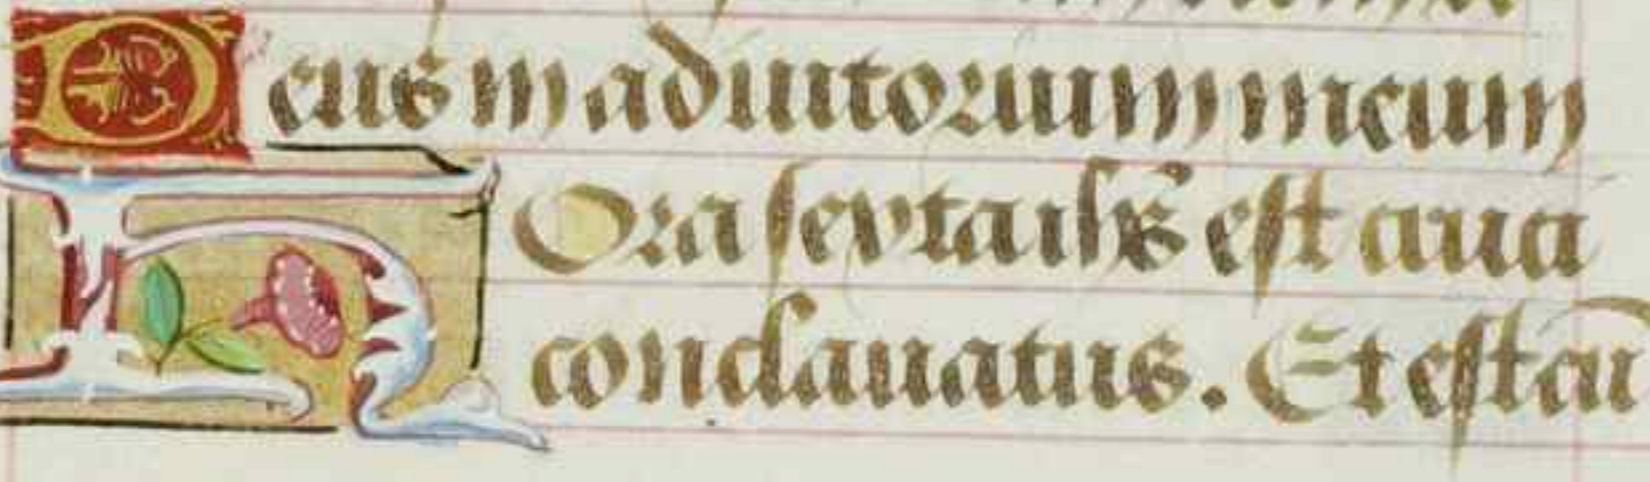 Deus in adiutorium meum
HOra sexta ihs est cruci
conclauatus. Et est cu